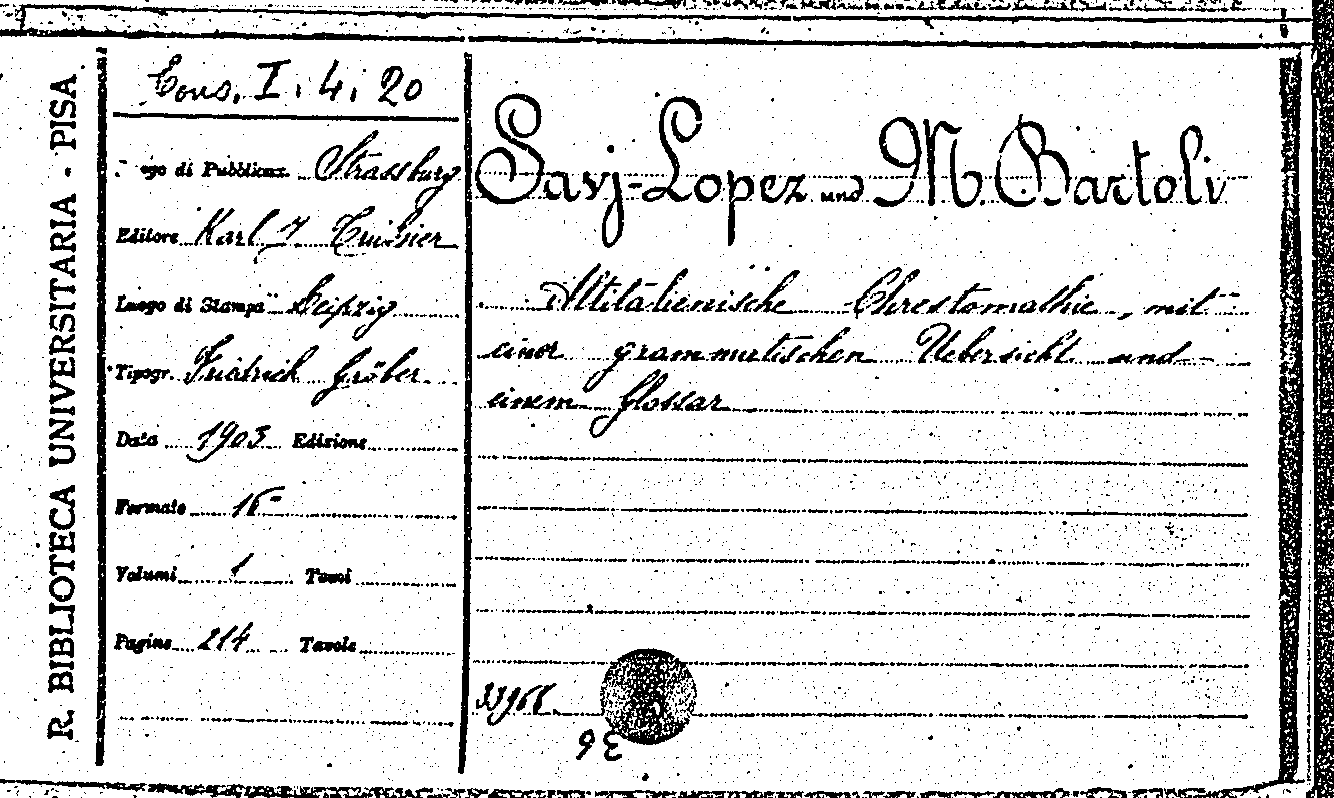 R. BIBLIOTECA UNIVERSITARIA - PISA
Cons. I. 4. 20
ogo di Pubblicaz. Strassburg
Editore Karl J
Luogo di Stampa Leipzig
Tipogr. Friedrich Gröber
Data 1903 Edizione
Formato 16º
Volumi 1 Tomi
Pagine 214 Tavole
Savj-Lopez und M. Bartoli
Altitalienische Chrestomathie, mit
einer grammatischen Uebersicht und
einem Glossar